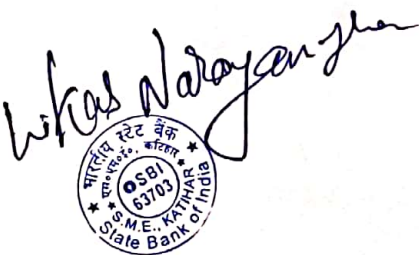 Vikas Narayan Jha
भारतीय स्टेट बैंक
एस०एम०ई०, कटिहार
SBI
63703
S.M.E., KATIHAR
State Bank of India